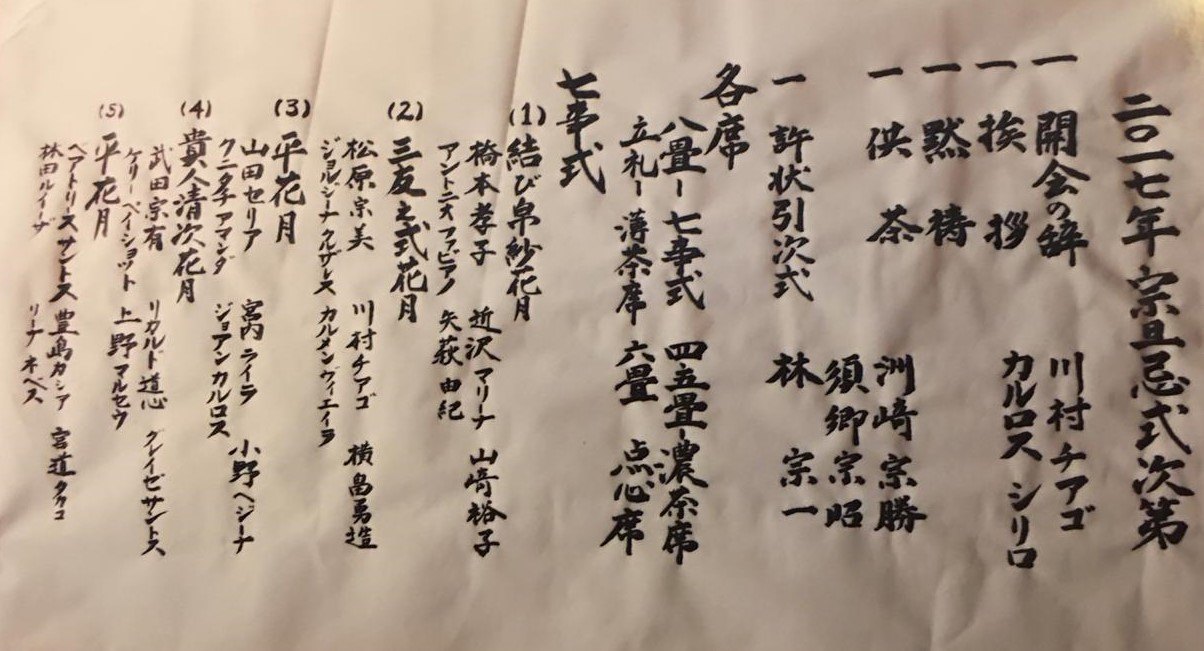 二〇一七年宗旦忌式次第
一 開会の辞 川村チアゴ
一 挨拶 カルロス シリロ
一 黙祷
一 供茶 洲崎宗勝
須郷宗昭
一 許状引次式 林宗一
各席
八畳ー七事式 四五畳ー濃茶席
立札ー薄茶席 六畳 点心席
七事式
(1) 結び帛紗花月
橋本孝子 近沢マリーナ 山崎裕子
アントニオファビアノ 矢萩由紀
(2) 三友之式花月
松原宗美 川村チアゴ 横畠勇造
ジョルジーナクルザレス カルメンヴィエイラ
(3) 平花月
山田セリア 宮内ライラ 小野ヘジーナ
クニタアマンダ ジョアンカルロス
(4) 貴人清次花月
武田宗有 リカルド道心 グレイゼサントス
ケリーペイショット 上野マルセウ
(5) 平花月
ベアトリースサントス 豊嶋カシア 宮道タカコ
林田ルイーザ リーナネベス